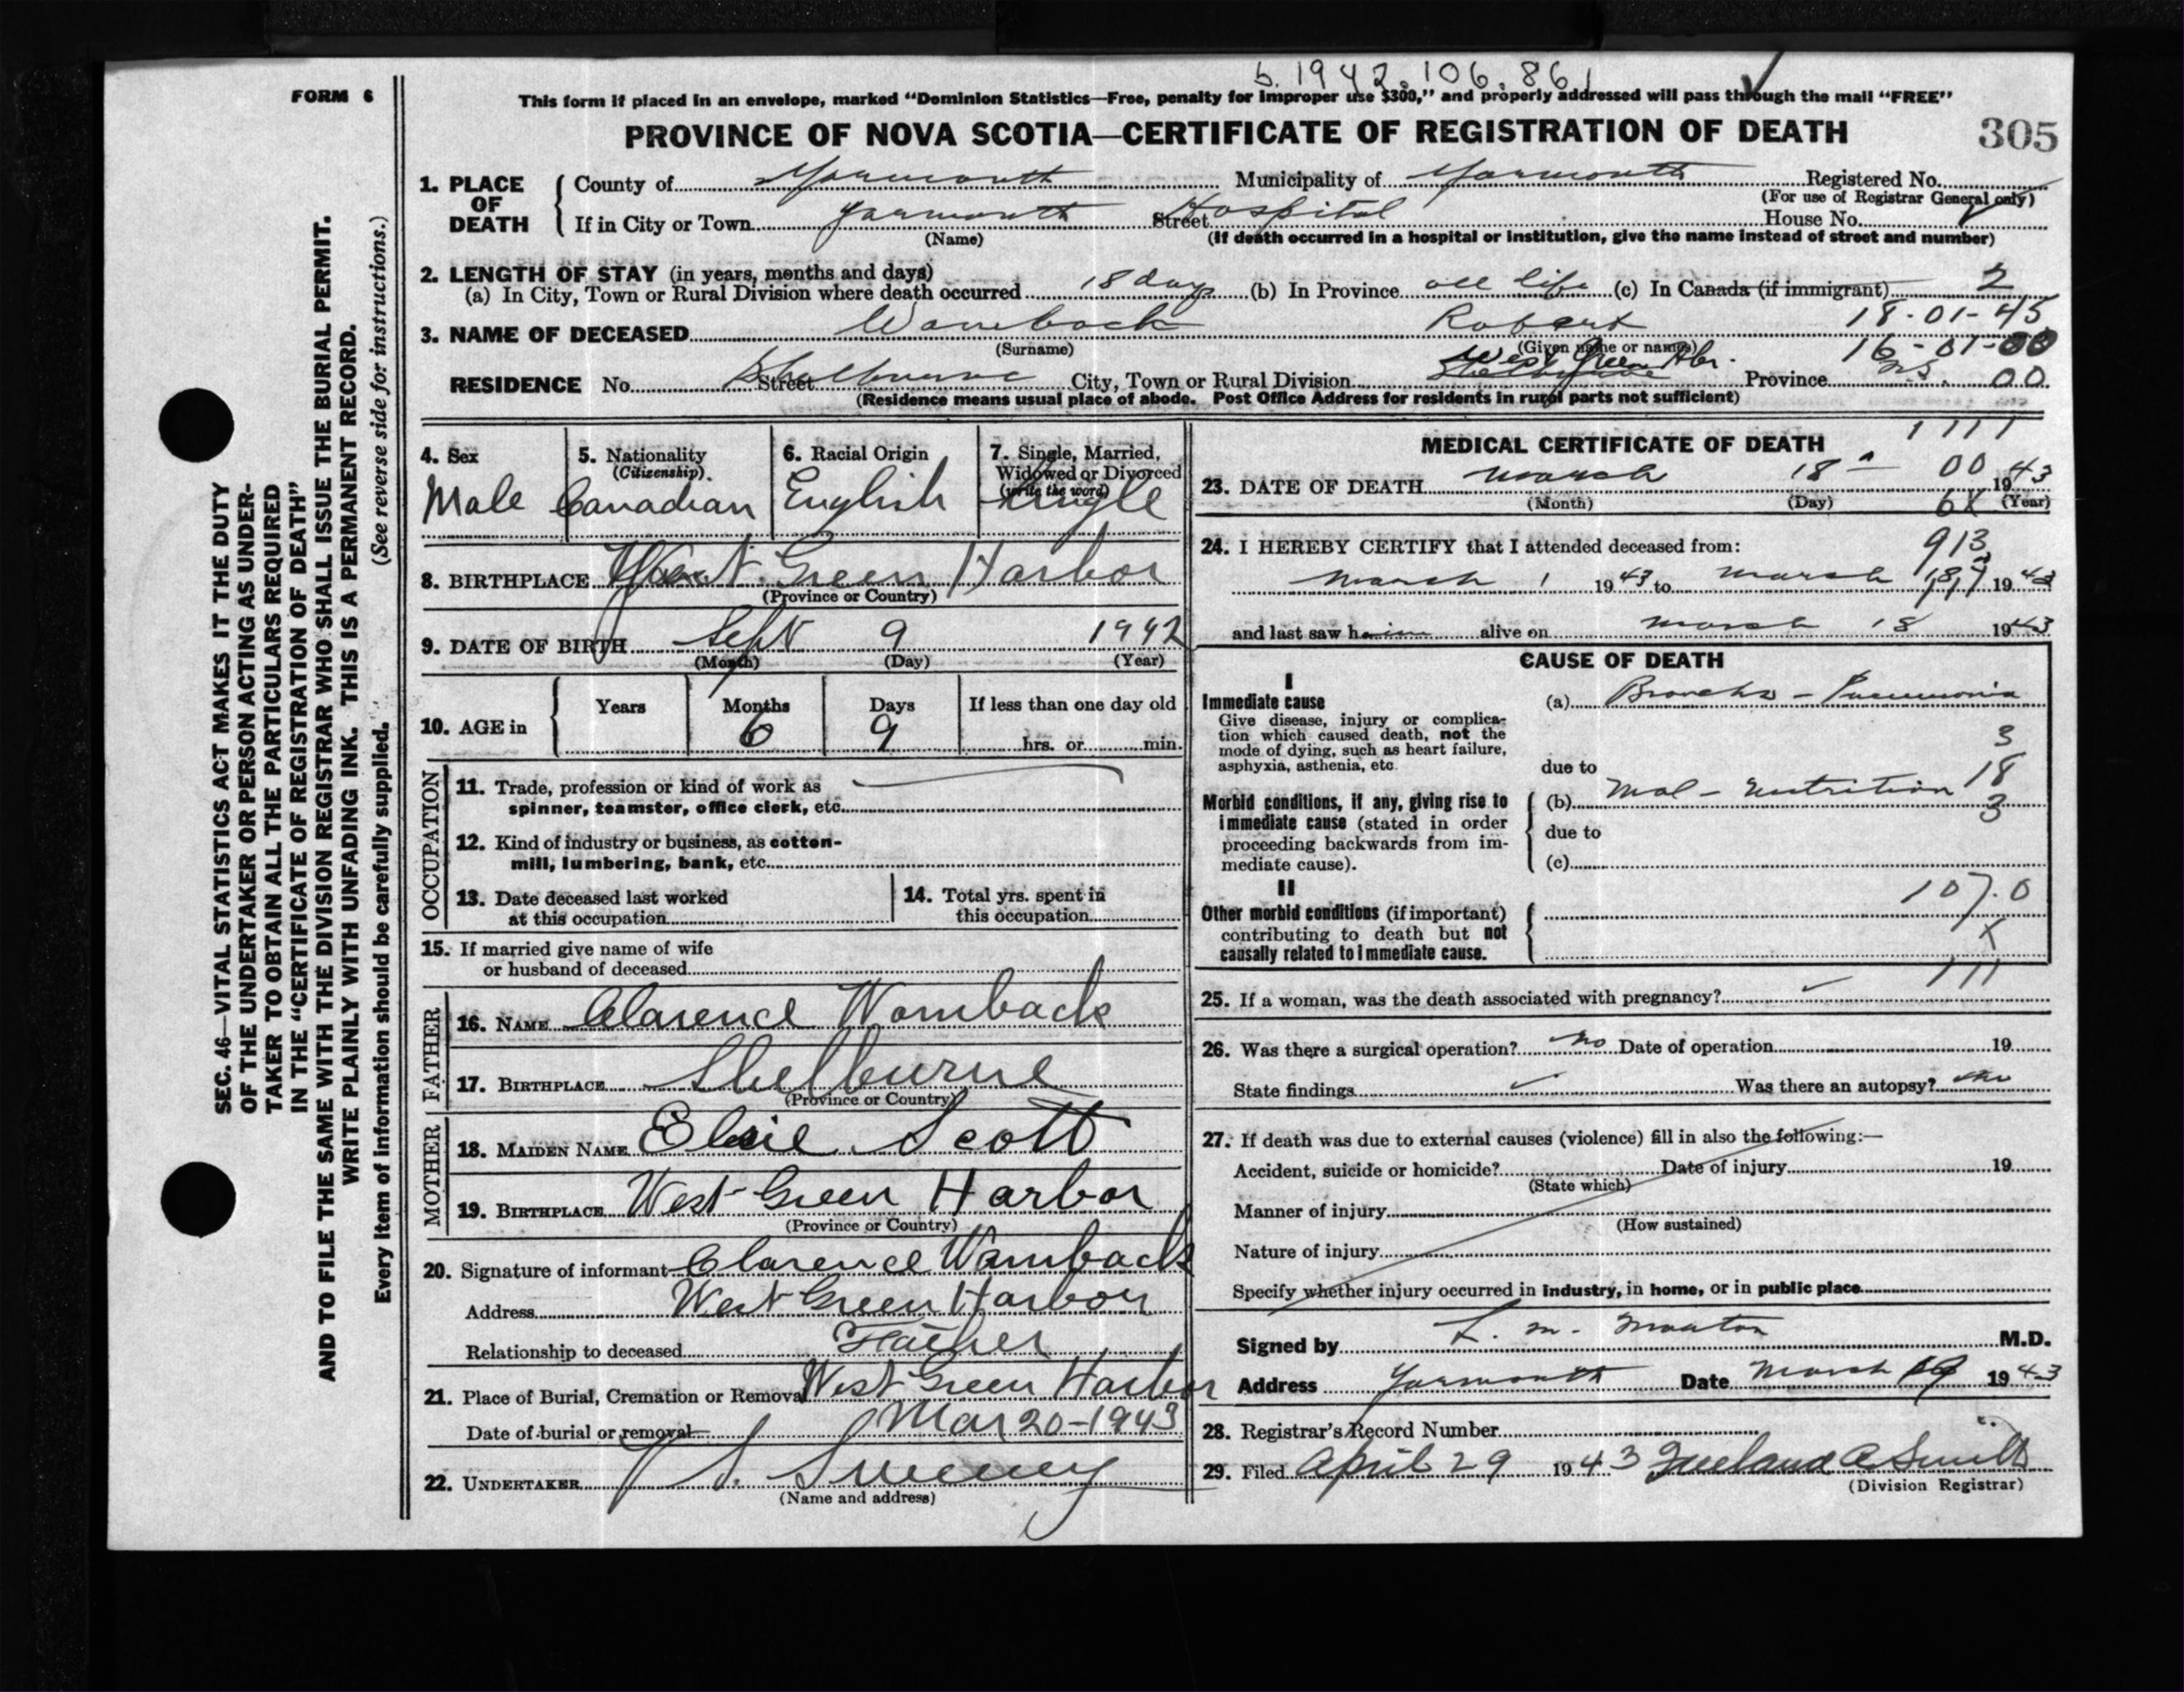 b. 1942. 106. 861
FORM 6
This form if placed in an envelope, marked "Dominion Statistics—Free, penalty for improper use $300," and properly addressed will pass through the mail "FREE"
PROVINCE OF NOVA SCOTIA—CERTIFICATE OF REGISTRATION OF DEATH 305
1. PLACE OF DEATH County of Yarmouth Municipality of Yarmouth Registered No.
(For use of Registrar General only)
If in City or Town Yarmouth Street Hospital House No.
(Name) (If death occurred in a hospital or institution, give the name instead of street and number)
2. LENGTH OF STAY (in years, months and days)
(a) In City, Town or Rural Division where death occurred 18 days (b) In Province all life (c) In Canada (if immigrant) 2
18-01-45
3. NAME OF DECEASED Wamback Robert
(Surname) (Given name or names) 16-01-00
West Green Hbr.
RESIDENCE No. Street Shelburne City, Town or Rural Division Shelburne Province N.S. 00
(Residence means usual place of abode. Post Office Address for residents in rural parts not sufficient)
4. Sex 5. Nationality (Citizenship) 6. Racial Origin 7. Single, Married, Widowed or Divorced (write the word)
Male Canadian English Single
8. BIRTHPLACE West Green Harbor
(Province or Country)
9. DATE OF BIRTH Sept 9 1942
(Month) (Day) (Year)
10. AGE in Years Months Days If less than one day old
6 9 hrs. or min.
OCCUPATION
11. Trade, profession or kind of work as
spinner, teamster, office clerk, etc.
12. Kind of industry or business, as cotton-
mill, lumbering, bank, etc.
13. Date deceased last worked
at this occupation
14. Total yrs. spent in
this occupation
15. If married give name of wife
or husband of deceased
FATHER
16. NAME Clarence Wamback
17. BIRTHPLACE Shelburne
(Province or Country)
MOTHER
18. MAIDEN NAME Elsie Scott
19. BIRTHPLACE West Green Harbor
(Province or Country)
20. Signature of informant Clarence Wamback
Address West Green Harbor
Relationship to deceased Father
21. Place of Burial, Cremation or Removal West Green Harbor
Date of burial or removal Mar 20-1943
22. UNDERTAKER V. S. Sweeney
(Name and address)
MEDICAL CERTIFICATE OF DEATH 1111
23. DATE OF DEATH March 18 00 1943
(Month) (Day) 6X (Year)
24. I HEREBY CERTIFY that I attended deceased from: 913
March 1 1943 to March 18 1943
and last saw him alive on March 18 1943
CAUSE OF DEATH
I
Immediate cause
Give disease, injury or complica-
tion which caused death, not the
mode of dying, such as heart failure,
asphyxia, asthenia, etc.
(a) Broncho - Pneumonia
3
due to
18
Morbid conditions, if any, giving rise to
immediate cause (stated in order
proceeding backwards from im-
mediate cause).
(b) Mal - nutrition
3
due to
(c)
II
Other morbid conditions (if important)
contributing to death but not
causally related to immediate cause.
107.0
X
111
25. If a woman, was the death associated with pregnancy?
26. Was there a surgical operation? No Date of operation 19
State findings Was there an autopsy? No
27. If death was due to external causes (violence) fill in also the following:—
Accident, suicide or homicide? Date of injury 19
(State which)
Manner of injury
(How sustained)
Nature of injury
Specify whether injury occurred in industry, in home, or in public place
Signed by L. M. Morton M.D.
Address Yarmouth Date March 19 1943
28. Registrar's Record Number
29. Filed April 29 1943 A Smith
(Division Registrar)
SEC. 46—VITAL STATISTICS ACT MAKES IT THE DUTY
OF THE UNDERTAKER OR PERSON ACTING AS UNDER-
TAKER TO OBTAIN ALL THE PARTICULARS REQUIRED
IN THE "CERTIFICATE OF REGISTRATION OF DEATH"
AND TO FILE THE SAME WITH THE DIVISION REGISTRAR WHO SHALL ISSUE THE BURIAL PERMIT.
WRITE PLAINLY WITH UNFADING INK. THIS IS A PERMANENT RECORD.
Every item of information should be carefully supplied. (See reverse side for instructions.)